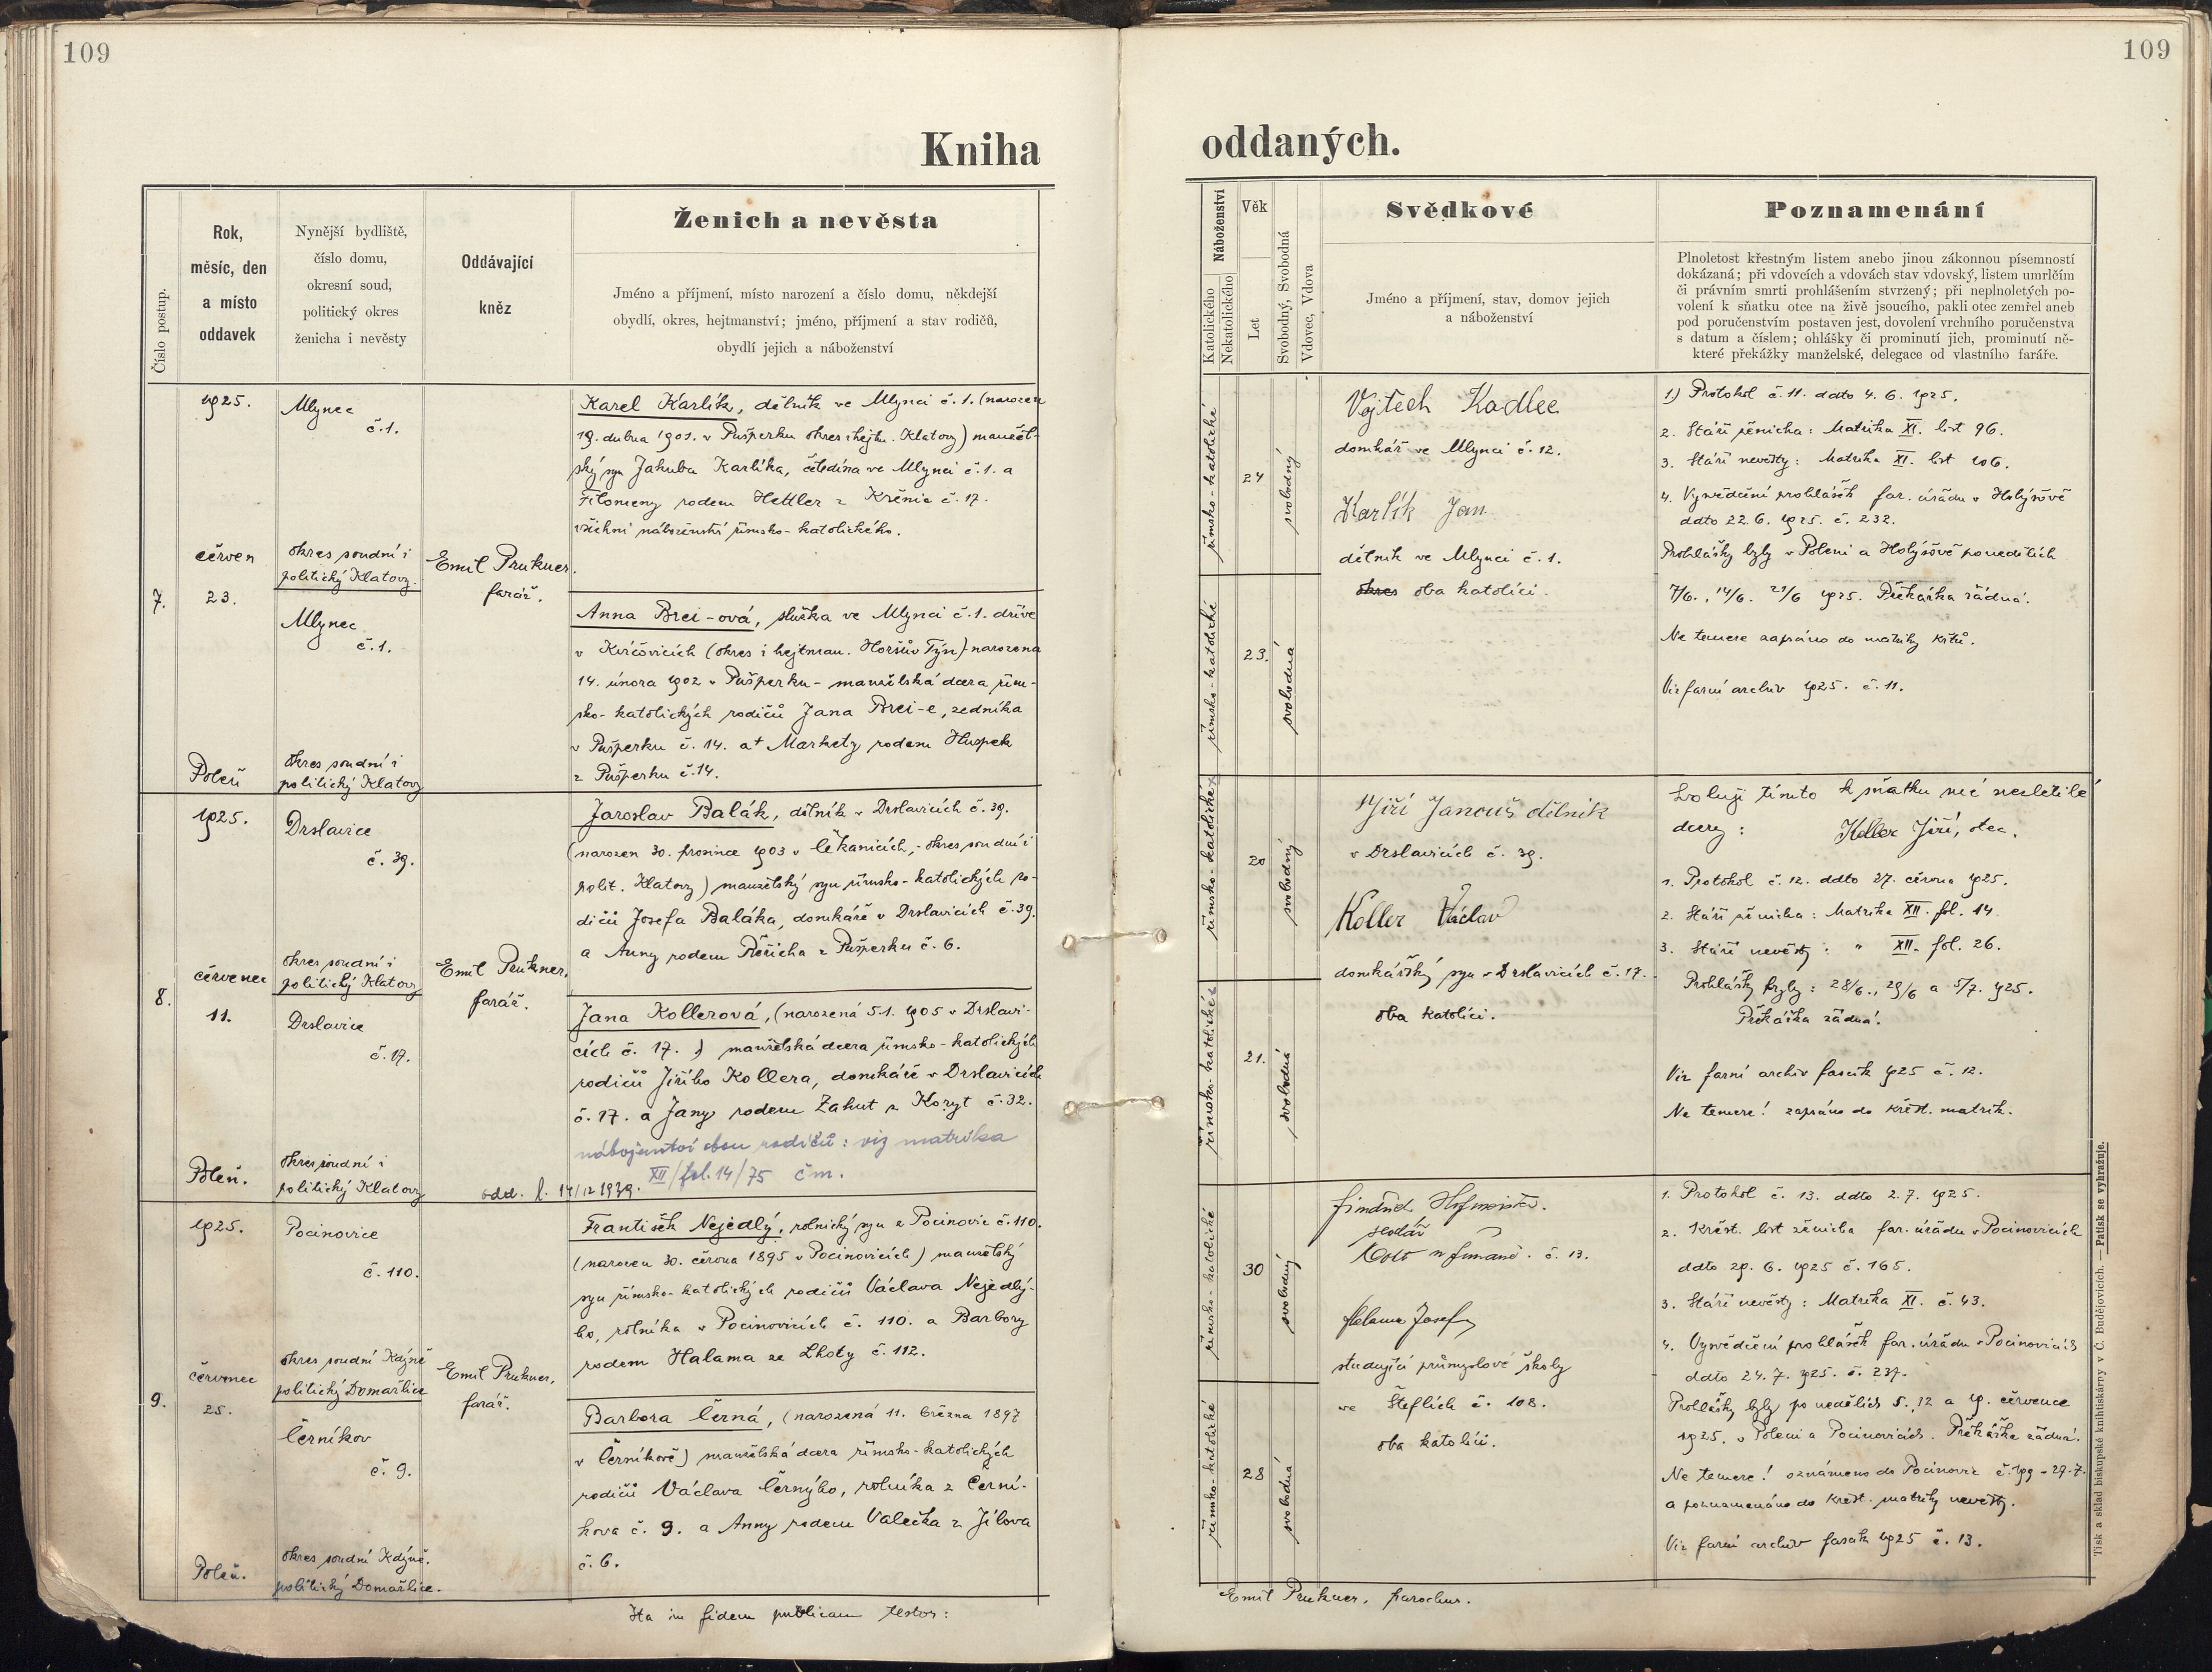 109
109
Kniha
oddaných.
Číslo postup.
Rok,
měsíc, den
a místo
oddavek
Nynější bydliště,
číslo domu,
okresní soud,
politický okres
ženicha i nevěsty
Oddávající
kněz
Ženich a nevěsta
Jméno a příjmení, místo narození a číslo domu, někdejší
obydlí, okres, hejtmanství; jméno, příjmení a stav rodičů,
obydlí jejich a náboženství
7.
1925.
červen
23.
Poleň
Mlynec
č. 1.
okres soudní i
politický Klatovy.
Mlynec
č. 1.
okres soudní i
politický Klatovy
Emil Prukner.
farář.
Karel Karlík, dělník ve Mlynci č. 1. (narozen
19. dubna 1901. v Pušperku okres i hejtm. Klatovy) manžel-
ský syn Jakuba Karlíka, čeledína ve Mlynci č. 1. a
Filomeny rodem Hettler z Křenic č. 17.
všichni náboženství římsko-katolického.
Anna Brei-ová, služka ve Mlynci č. 1. dříve
v Kvíčovicích (okres i hejtman. Horšův Týn) narozena
14. února 1902 v Pušperku - manželská dcera řím-
sko-katolických rodičů Jana Brei-e, zedníka
v Pušperku č. 14. a + Markety rodem Huspek
z Pušperku č. 14.
8.
1925.
červenec
11.
Poleň.
Drslavice
č. 39.
okres soudní i
politický Klatovy
Drslavice
č. 17.
okres soudní i
politický Klatovy
Emil Prukner.
farář.
Jaroslav Balák, dělník v Drslavicích č. 39.
(narozen 30. prosince 1903 v, okres soudní i
polit. Klatovy) manželský syn římsko-katolických ro-
dičů Josefa Baláka, domkáře v Drslavicích č. 39.
a Anny rodem Řeřicha z Pušperku č. 6.
Jana Kollerová, (narozená 5.1. 1905 v Drslavi-
cích č. 17.) manželská dcera římsko-katolických
rodičů Jiřího Kollera, domkáře v Drslavicích
č. 17. a Jany rodem Žahut z Koryt č. 32.
nábožentví obou rodičů: viz matrika
XII/fol. 14/75 čm.
odd. l. 14/12 1939.
9.
1925.
červenec
25.
Poleň.
Pocinovice
č. 110.
okres soudní Kdýně
politický Domažlice
Černíkov
č. 9.
okres soudní Kdýně.
politický Domažlice.
Emil Prukner,
farář.
František Nejedlý, rolnický syn z Pocinovic č. 110.
(narozen 30. června 1895 v Pocinovicích) manželský
syn římsko-katolických rodičů Václava Nejedlý-
ho, rolníka v Pocinovicích č. 110. a Barbory
rodem Halama ze Lhoty č. 112.
Barbora Černá, (narozená 11. března 1897
v Černíkově) manželská dcera římsko-katolických
rodičů Václava Černýho, rolníka z Černí-
kova č. 9. a Anny rodem Valečka z Jílova
č. 6.
Ita in fidem publicam testor:
Náboženství
Katolického
Nekatolického
Věk
Let
Svobodný, Svobodná
Vdovec, Vdova
Svědkové
Jméno a příjmení, stav, domov jejich
a náboženství
Poznamenání
Plnoletost křestným listem anebo jinou zákonnou písemností
dokázaná; při vdovcích a vdovách stav vdovský, listem umrlčím
či právním smrti prohlášením stvrzený; při neplnoletých po-
volení k sňatku otce na živě jsoucího, pakli otec zemřel aneb
pod poručenstvím postaven jest, dovolení vrchního poručenstva
s datum a číslem; ohlášky či prominutí jich, prominutí ně-
které překážky manželské, delegace od vlastního faráře.
římsko-katolické
24
svobodný
římsko-katolické
23.
svobodná
Vojtěch Kadlec
domkář ve Mlynci č. 12.
Karlík Jan
dělník ve Mlynci č. 1.
okres oba katolíci.
1) Protokol č. 11. ddto 4. 6. 1925.
2. Stáří ženicha: Matrika XI. list 96.
3. Stáří nevěsty: Matrika XI. list 106.
4. Vysvědčení prohlášek far. úřadu v Holýšově
ddto 22. 6. 1925. č. 232.
Prohlášky byly v Poleni a Holýšově po nedělích
7/6., 14/6. 21/6 1925. Překážka žádná.
Ne temere zapsáno do matriky křtů.
Viz farní archiv 1925. č. 11.
římsko-katolické
20
svobodný
římsko-katolické
21.
svobodná
Jiří Janouš dělník
v Drslavicích č. 39.
Koller Václav
domkářský syn v Drslavicích č. 17.
oba katolíci.
Svoluji tímto k sňatku své nezletilé
dcery: Koller Jiří, otec.
1. Protokol č. 12. ddto 27. června 1925.
2. Stáří ženicha: Matrika XII. fol. 14.
3. Stáří nevěsty: " XII. fol. 26.
Prohlášky byly: 28/6., 29/6 a 5/7. 1925.
Překážka žádná.
Viz farní archiv fascik 1925 č. 12.
Ne temere! zapsáno do křest. matrik.
římsko-katolické
30
svobodný
římsko-katolické
28
svobodná
Jindřich Hofmeister.
sedlář
č. 13.
Halama Josef
studující průmyslové školy
ve č. 108.
oba katolíci.
1. Protokol č. 13. ddto 2. 7. 1925.
2. Křest. list ženicha far. úřadu v Pocinovicích
ddto 29. 6. 1925 č. 165.
3. Stáří nevěsty: Matrika XI. č. 43.
4. Vysvědčení prohlášek far. úřadu v Pocinovicích
ddto 24. 7. 1925. č. 237.
Prohlášky byly po nedělích 5., 12 a 19. července
1925. v Poleni a Pocinovicích. Překážka žádná.
Ne temere! oznámeno do Pocinovic č. 199 - 27.7.
a poznamenáno do křest. matriky nevěsty.
Viz farní archiv fascik 1925 č. 13.
Emil Prukner, parochus.
Tisk a sklad biskupské knihtiskárny v Č. Budějovicích. — Patisk se vyhražuje.